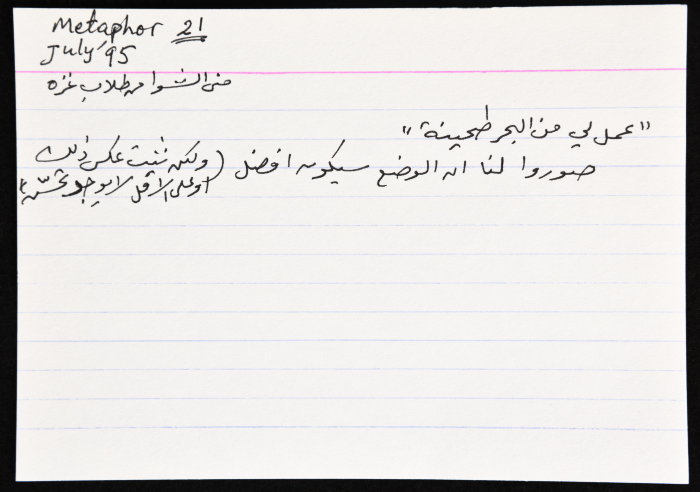 Metaphor 21
July '95
منى الشوا من طلاب غزه
"عمل لي من البحر طحينة"
صوروا لنا ان الوضع سيكون افضل (ولكن تثبت عكس ذلك
او على الاقل لا يوجد تحسّن)